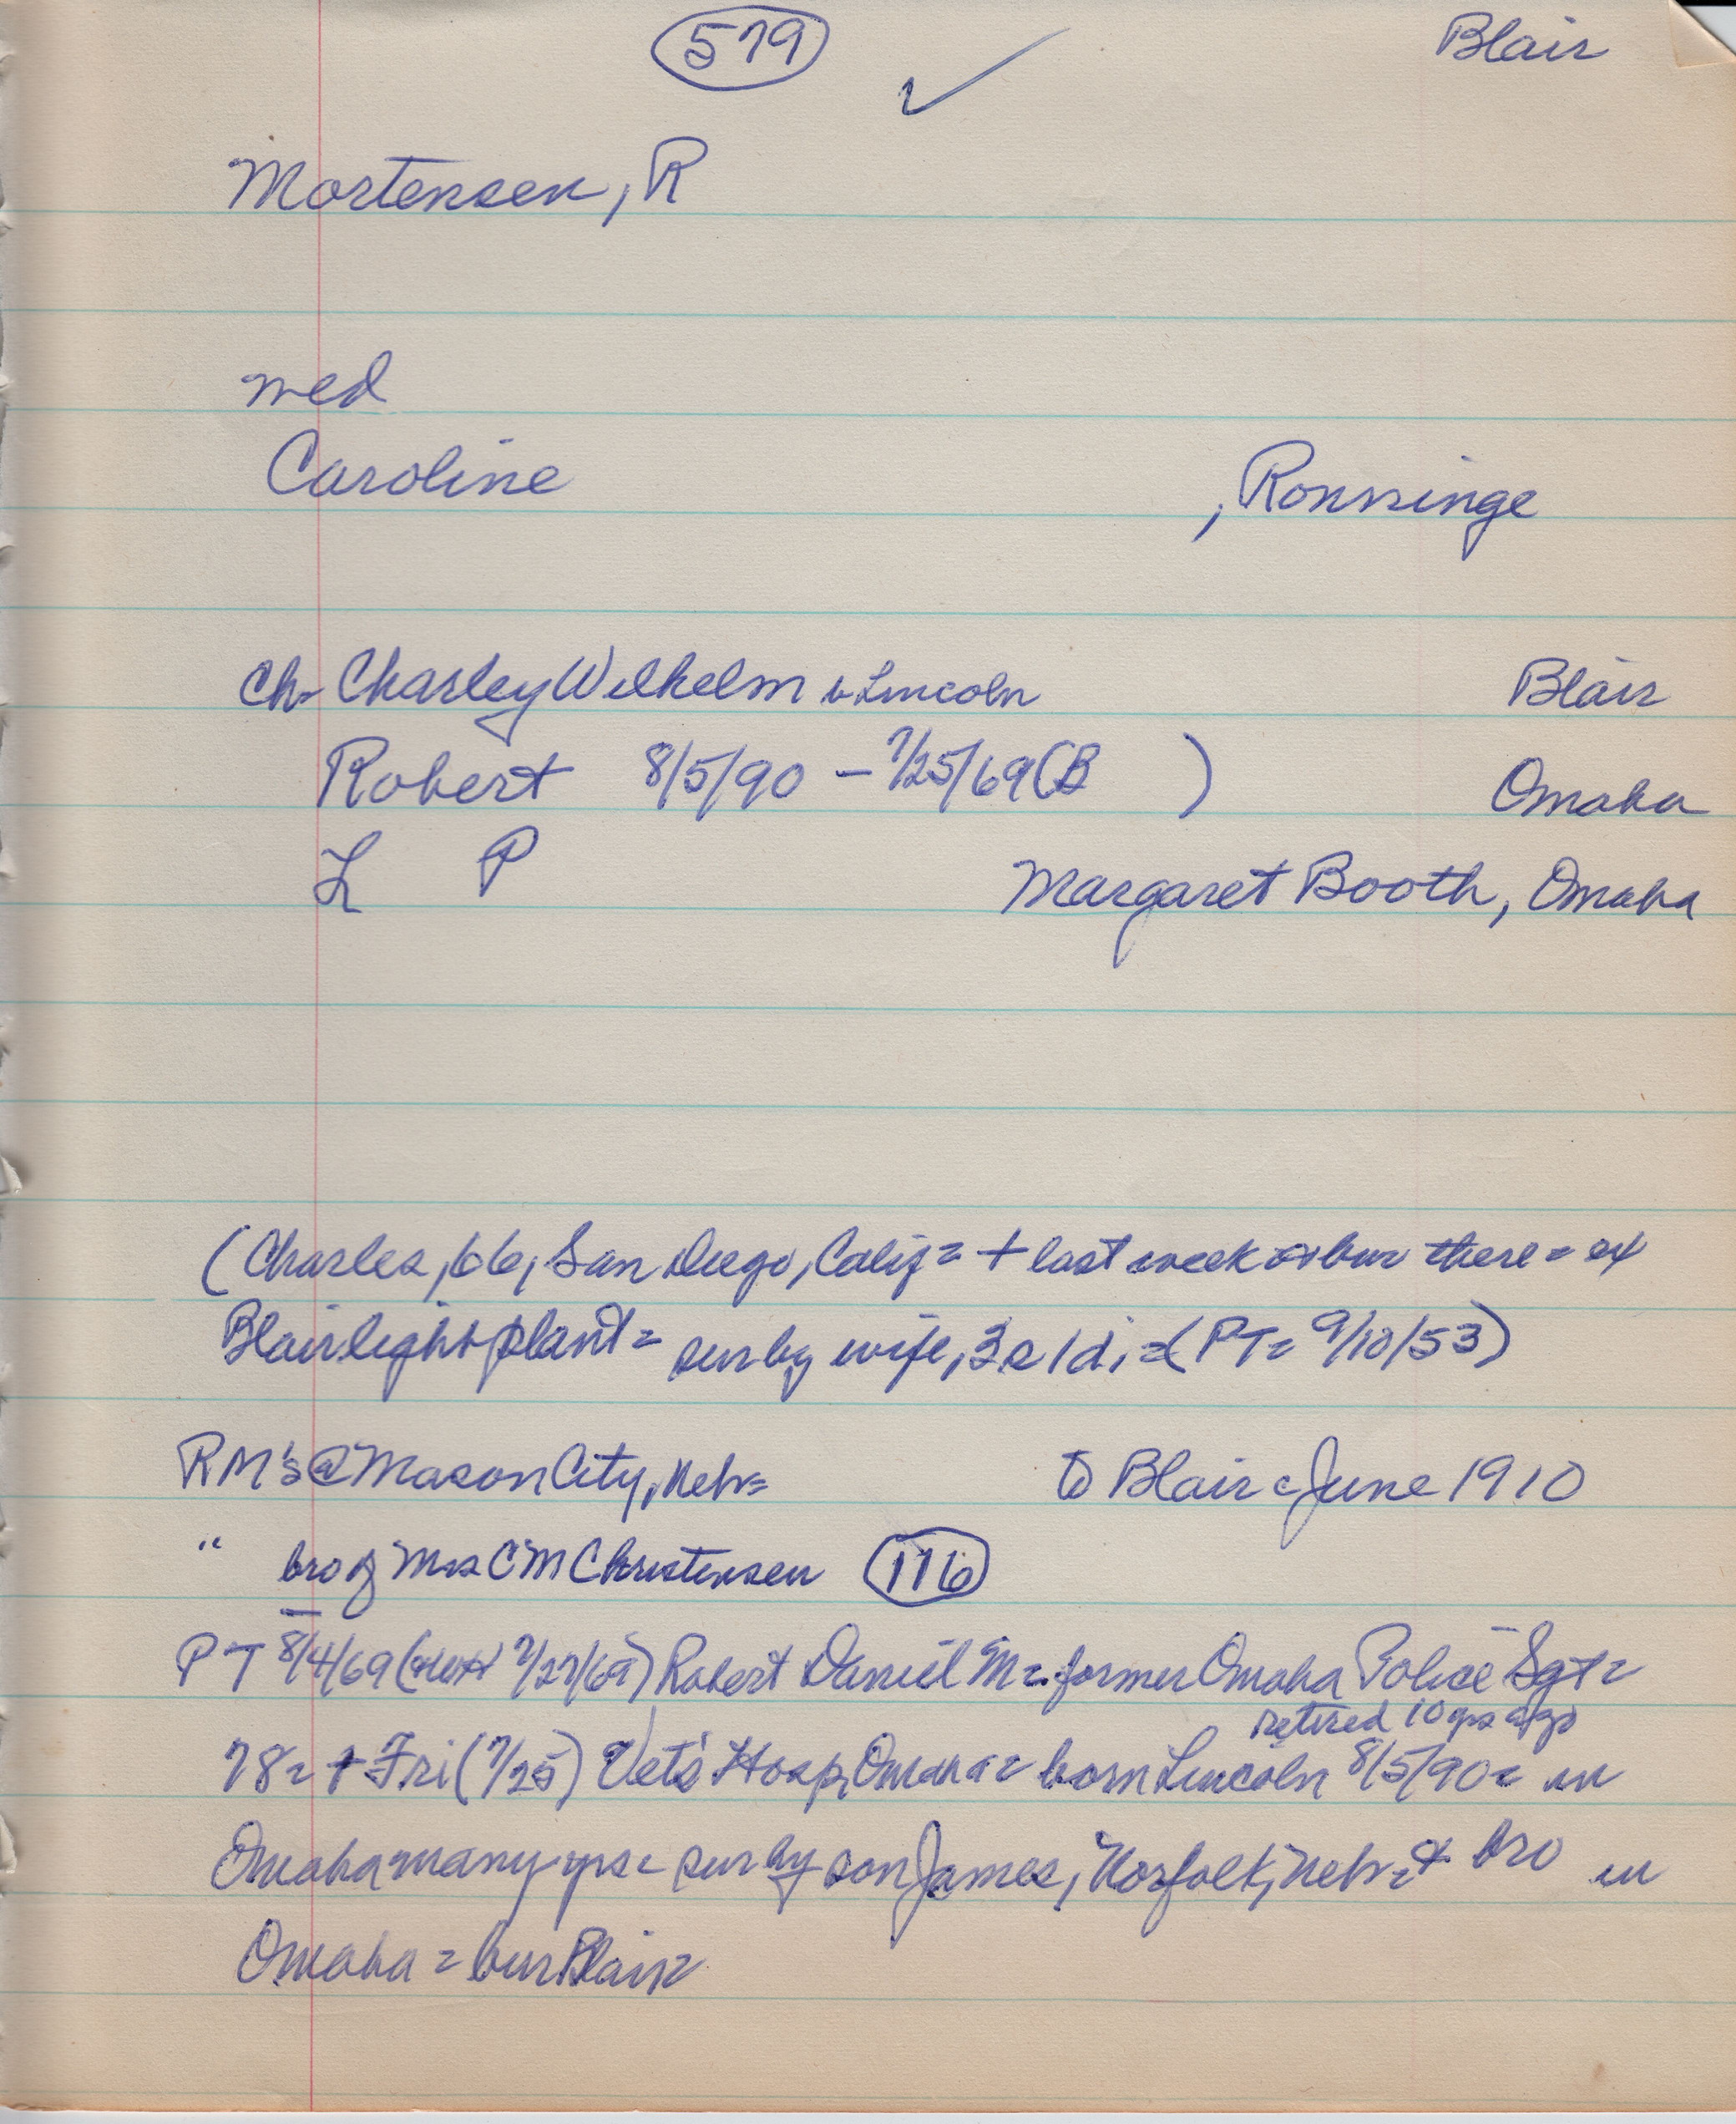 579 ✓ Blair
Mortensen, R
med
Caroline , Ronninge
Ch- Charley Wilhelm b Lincoln Blair
Robert 8/5/90 – 7/25/69 (B ) Omaha
L P Margaret Booth, Omaha
(Charles, 66, San Diego, Calif = + last week & bur there = ex
Blair light plant = sur by wife, 3s 1d, = (PT = 9/10/53)
RM's @ Mason City, Nebr = to Blair c June 1910
" bro of Mrs CM Christensen 116
PT 8/4/69 ( 7/27/69) Robert Daniel M = former Omaha Police Sgt =
retired 10 yrs ago
78 = + Fri (7/25) Vet's Hosp, Omaha = born Lincoln 8/5/90 = in
Omaha many yrs = sur by son James, Norfolk, Nebr = + bro in
Omaha = bur Blair =